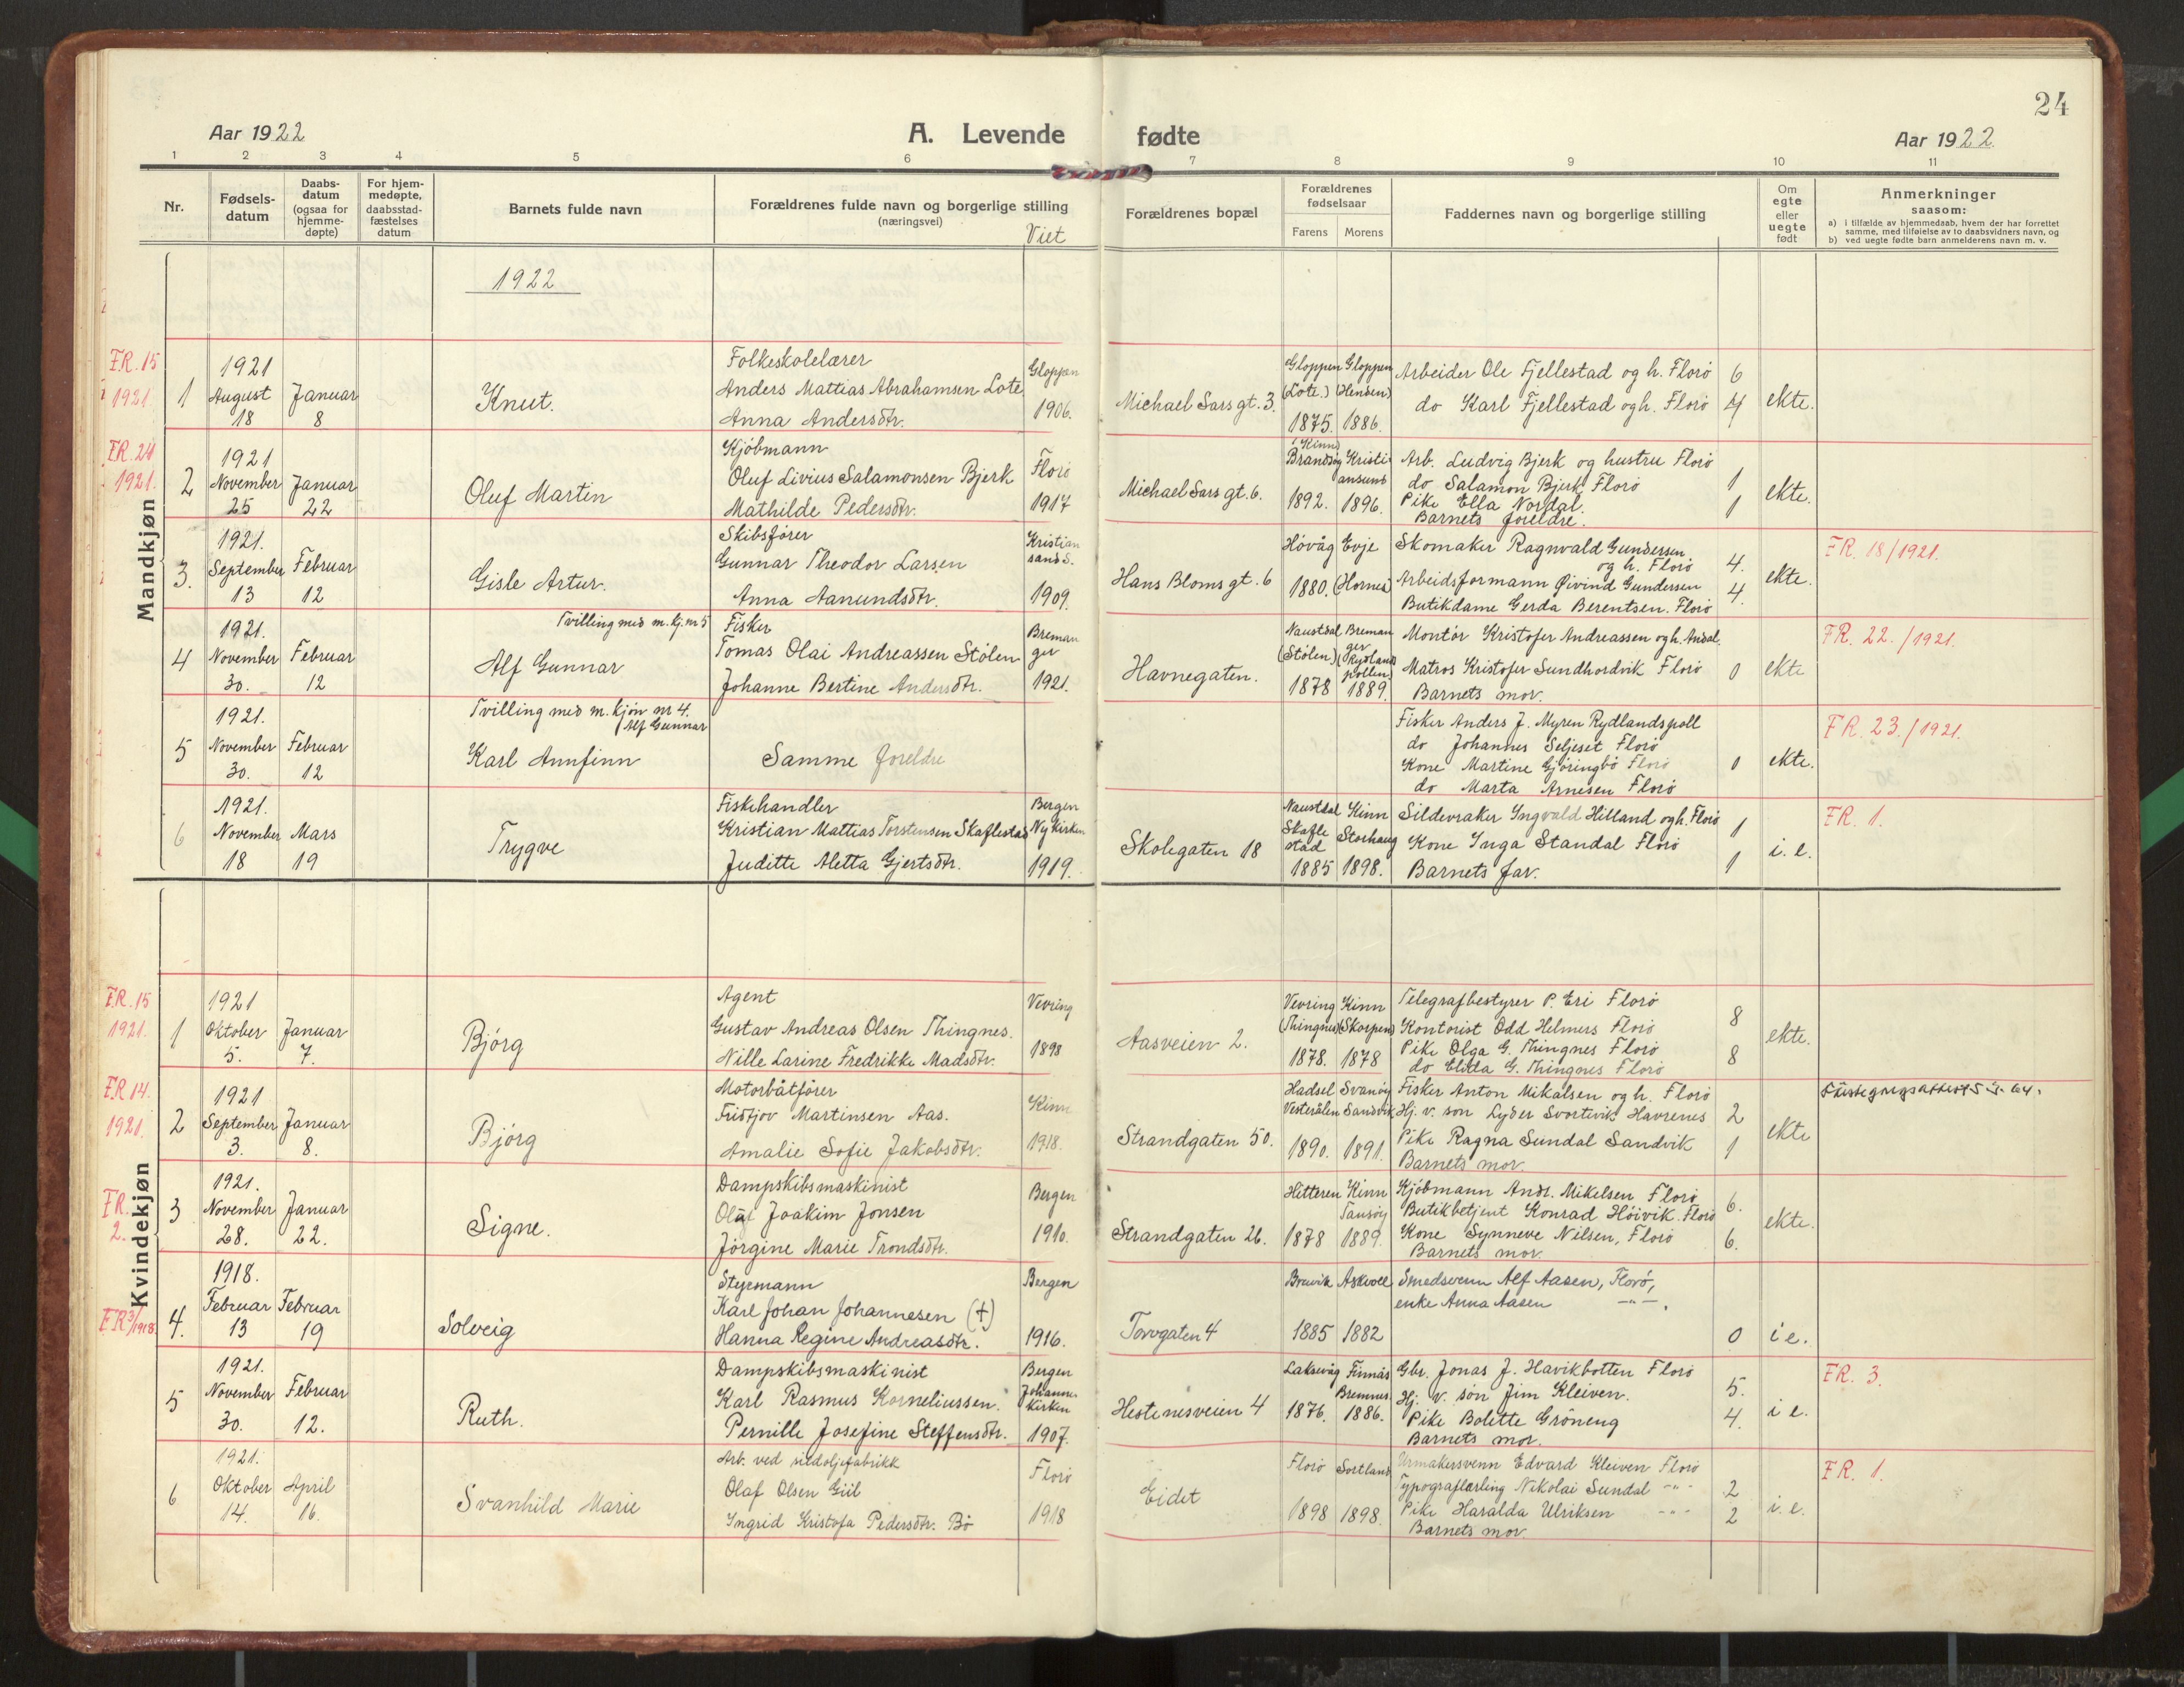 24
Aar 1922
A. Levende fødte
Aar 1922.
1 2 3 4 5 6 7 8 9 10 11
Nr.
Fødsels-
datum
Daabs-
datum
(ogsaa for
hjemme-
døpte)
For hjem-
medøpte,
daabsstad-
fæstelses
datum
Barnets fulde navn
Forældrenes fulde navn og borgerlige stilling
(næringsvei)
Viet
Forældrenes bopæl
Forældrenes
fødselsaar
Farens Morens
Faddernes navn og borgerlige stilling
Om
egte
eller
uegte
født
Anmerkninger
saasom:
a) i tilfælde av hjemmedaab, hvem der har forrettet
samme, med tilføielse av to daabsvidners navn, og
b) ved uegte fødte barn anmelderens navn m. v.
1922
Mandkjøn
FR. 15
1921.
1
1921
August
18
Januar
8
Knut.
Folkeskolelærer
Anders Mattias Abrahamsen Lote
Anna Andersdtr.
Gloppen
1906.
Michael Sars gt. 3.
Gloppen
(Lote.)
1875.
Gloppen
(Henden)
1886.
Arbeider Ole Fjellestad og h. Florö
do Karl Fjellestad og h. Florö
6
4
ekte.
FR. 24
1921.
2
1921
November
25
Januar
22
Oluf Martin
Kjöbmann
Oluf Livius Salamonsen Bjerk
Mathilde Pedersdtr.
Florö
1917
Michael Sars gt. 6.
Kinn
Brandsøy
1892.
Kristi
ansund
1896.
Arb. Ludvig Bjerk og hustru Florö
do Salamon Bjerk Florö
Pike Ella Nordal.
Barnets foreldre.
1
1
ekte.
3.
1921.
September
13
Februar
12
Gisle Artur.
Skibsfører
Gunnar Theodor Larsen
Anna Aanundsdtr.
Kristian
sand S.
1909.
Hans Bloms gt. 6
Hövåg
1880.
Evje
(Hornes)
Skomaker Ragnvald Gundersen
og h. Florö
Arbeidsformann Øivind Gundersen
Butikdame Gerda Berentsen. Florö
4.
4.
ekte.
FR. 18/1921.
4
1921.
November
30.
Februar
12
Tvilling med m. kj. nr 5
Alf Gunnar
Fisker
Tomas Olai Andreassen Stölen
Johanne Bertine Andersdtr.
Breman
ger
1921.
Havnegaten.
Naustdal
(Stölen)
1878
Breman
ger
(Rydlands
pollen)
1889.
Montör Kristofer Andreassen og h. Andal.
Matros Kristofer Sundhordvik Florö
Barnets mor.
0
ekte
FR. 22./1921.
5
1921.
November
30.
Februar
12
Tvilling med m. kjön nr 4.
Alf Gunnar
Karl Annfinn
Samme foreldre
Fisker Anders J. Myren Rydlandspoll
do Johannes Seljeset Florö
Kone Martine Gjöringbö Florö
do Marta Arnesen Florö
0
ekte.
FR. 23./1921.
6
1921.
November
18
Mars
19
Trygve
Fiskehandler
Kristian Mattias Torstensen Skaflestad
Juditte Aletta Gjertsdtr.
Bergen
Nykirken
1919.
Skolegaten 18
Naustdal
Skafle
stad
1885
Kinn
Storhaug
1898.
Sildevraker Ingvald Hilland og h. Florö
Kone Inga Standal Florö
Barnets far.
1
1
i. e.
FR. 1.
Kvindekjøn
FR. 15
1921.
1
1921
Oktober
5.
Januar
7.
Bjórg
Agent
Gustav Andreas Olsen Thingnes.
Nille Larine Fredrikke Madsdtr.
Vevring
1898
Aasveien 2.
Vevring
(Thingnes)
1878.
Kinn
(Skorpen)
1878
Telegrafbestyrer P. Eri Florö
Kontorist Odd Helmers Florö
Pike Olga G. Thingnes Florö
do Elida G. Thingnes Florö
8
8
ekte.
FR 14.
1921.
2
1921
September
3.
Januar
8.
Bjórg
Motorbåtfører
Fridtjov Martinsen Aas.
Amalie Sofie Jakobsdtr.
Kinn
1918.
Strandgaten 50.
Hadsel
Vesterålen
1890.
Svanöy
Sandvik
1891.
Fisker Anton Mikalsen og h. Florö
Hj. v. son Lyder Svortevik Havrenes
Pike Ragna Sundal Sandvik
Barnets mor.
2
1
ekte
FR.
2.
3
1921.
November
28.
Januar
22.
Signe.
Dampskibsmaskinist
Olaf Joakim Jonsen
Jörgine Marie Trondsdtr.
Bergen
1910.
Strandgaten 26.
Hitteren
1878
Kinn
Tansöy
1889.
Kjöbmann Andr. Mikelsen Florö
Butikbetjent Konrad Höivik. Florö
Kone Synneve Nilsen, Florö
Barnets mor.
6.
6.
ekte.
FR 3/1918.
4.
1918.
Februar
13
Februar
19
Solveig
Styrmann
Karl Johan Johannesen (†)
Hanna Regine Andreasdtr.
Bergen
1916.
Torvgaten 4
Brevik
1885
Askvoll
1882
Smedsvenn Alf Aasen, Florö,
enke Anna Aasen —"—.
0
i e.
5
1921.
November
30.
Februar
12.
Ruth.
Dampskibsmaskinist
Karl Rasmus Korneliussen.
Pernille Josefine Steffensdtr.
Bergen
Johannes
kirken
1907.
Hestenesveien 4
Laksevåg
1876.
Finnås
Bremnes
1886.
Gbr. Jonas J. Havikbotten Florö
Hj. v. sön Jim Kleiven.
Pike Bolette Gröneng
Barnets mor.
5.
4.
i e.
FR. 3.
6
1921.
Oktober
14.
April
16.
Svanhild Marie
Arb. ved sildoljefabrikk
Olaf Olsen Giil
Ingrid Kristofa Pedersdtr. Bö
Florö
1918
Eidet
Florö
1898
Sortland
1898.
Urmakersvenn Edvard Kleiven Florö
Typograflærling Nikolai Sundal -"-
Pike Haralda Ulriksen -"-
Barnets mor.
2
2
i. e.
FR. 1.